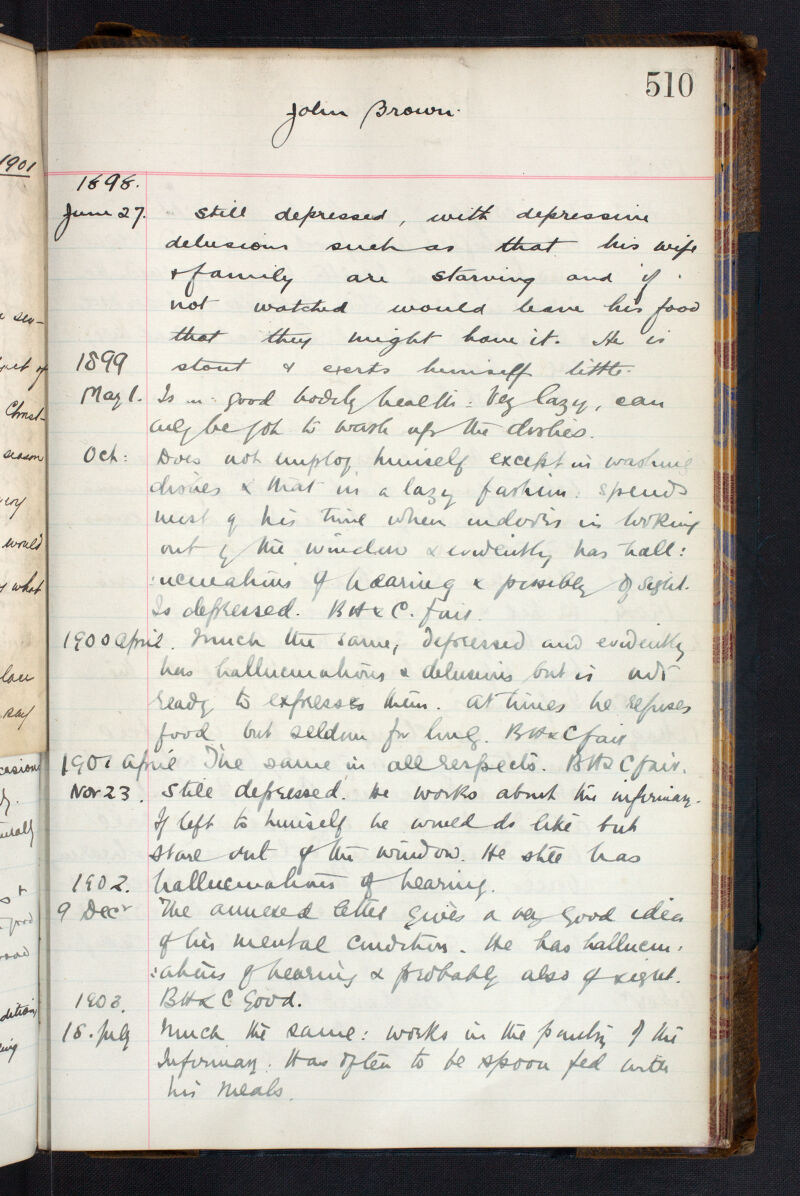 510
John Brown.
1901
1898.
June 27. Still depressed, with depressive
delusions such as that his wife
& family are starving and if
not watched would leave his food
that they might have it. He is
1899 stout & exerts himself little.
May 1. Is in good bodily health: Very lazy, can
only be got to wash up the dishes.
Oct: Does not employ himself except in washing
dishes & that in a lazy fashion: spends
most of his time when indoors in looking
out of the window & evidently has hall:
:ucinations of hearing & possibly of sight.
Is depressed. BH&C. fair.
1900 April. Much the same, depressed and evidently
has hallucinations & delusions but is not
ready to express them. At times he refuses
food but seldom for long. BH&C fair
1901 April The same in all respects. BH&C fair.
Nov 23. Still depressed. He works about the infirmary.
If left to himself he would do like but
stare out of the window. He still has
1902. hallucinations of hearing.
9 Decr The annexed letter gives a very good idea
of his mental condition. He has hallucin:
:ations of hearing & probably also of sight.
1903. BH&C Good.
18. July Much the same: works in the pantry of the
Infirmary. Has often to be spoon fed with
his meals.